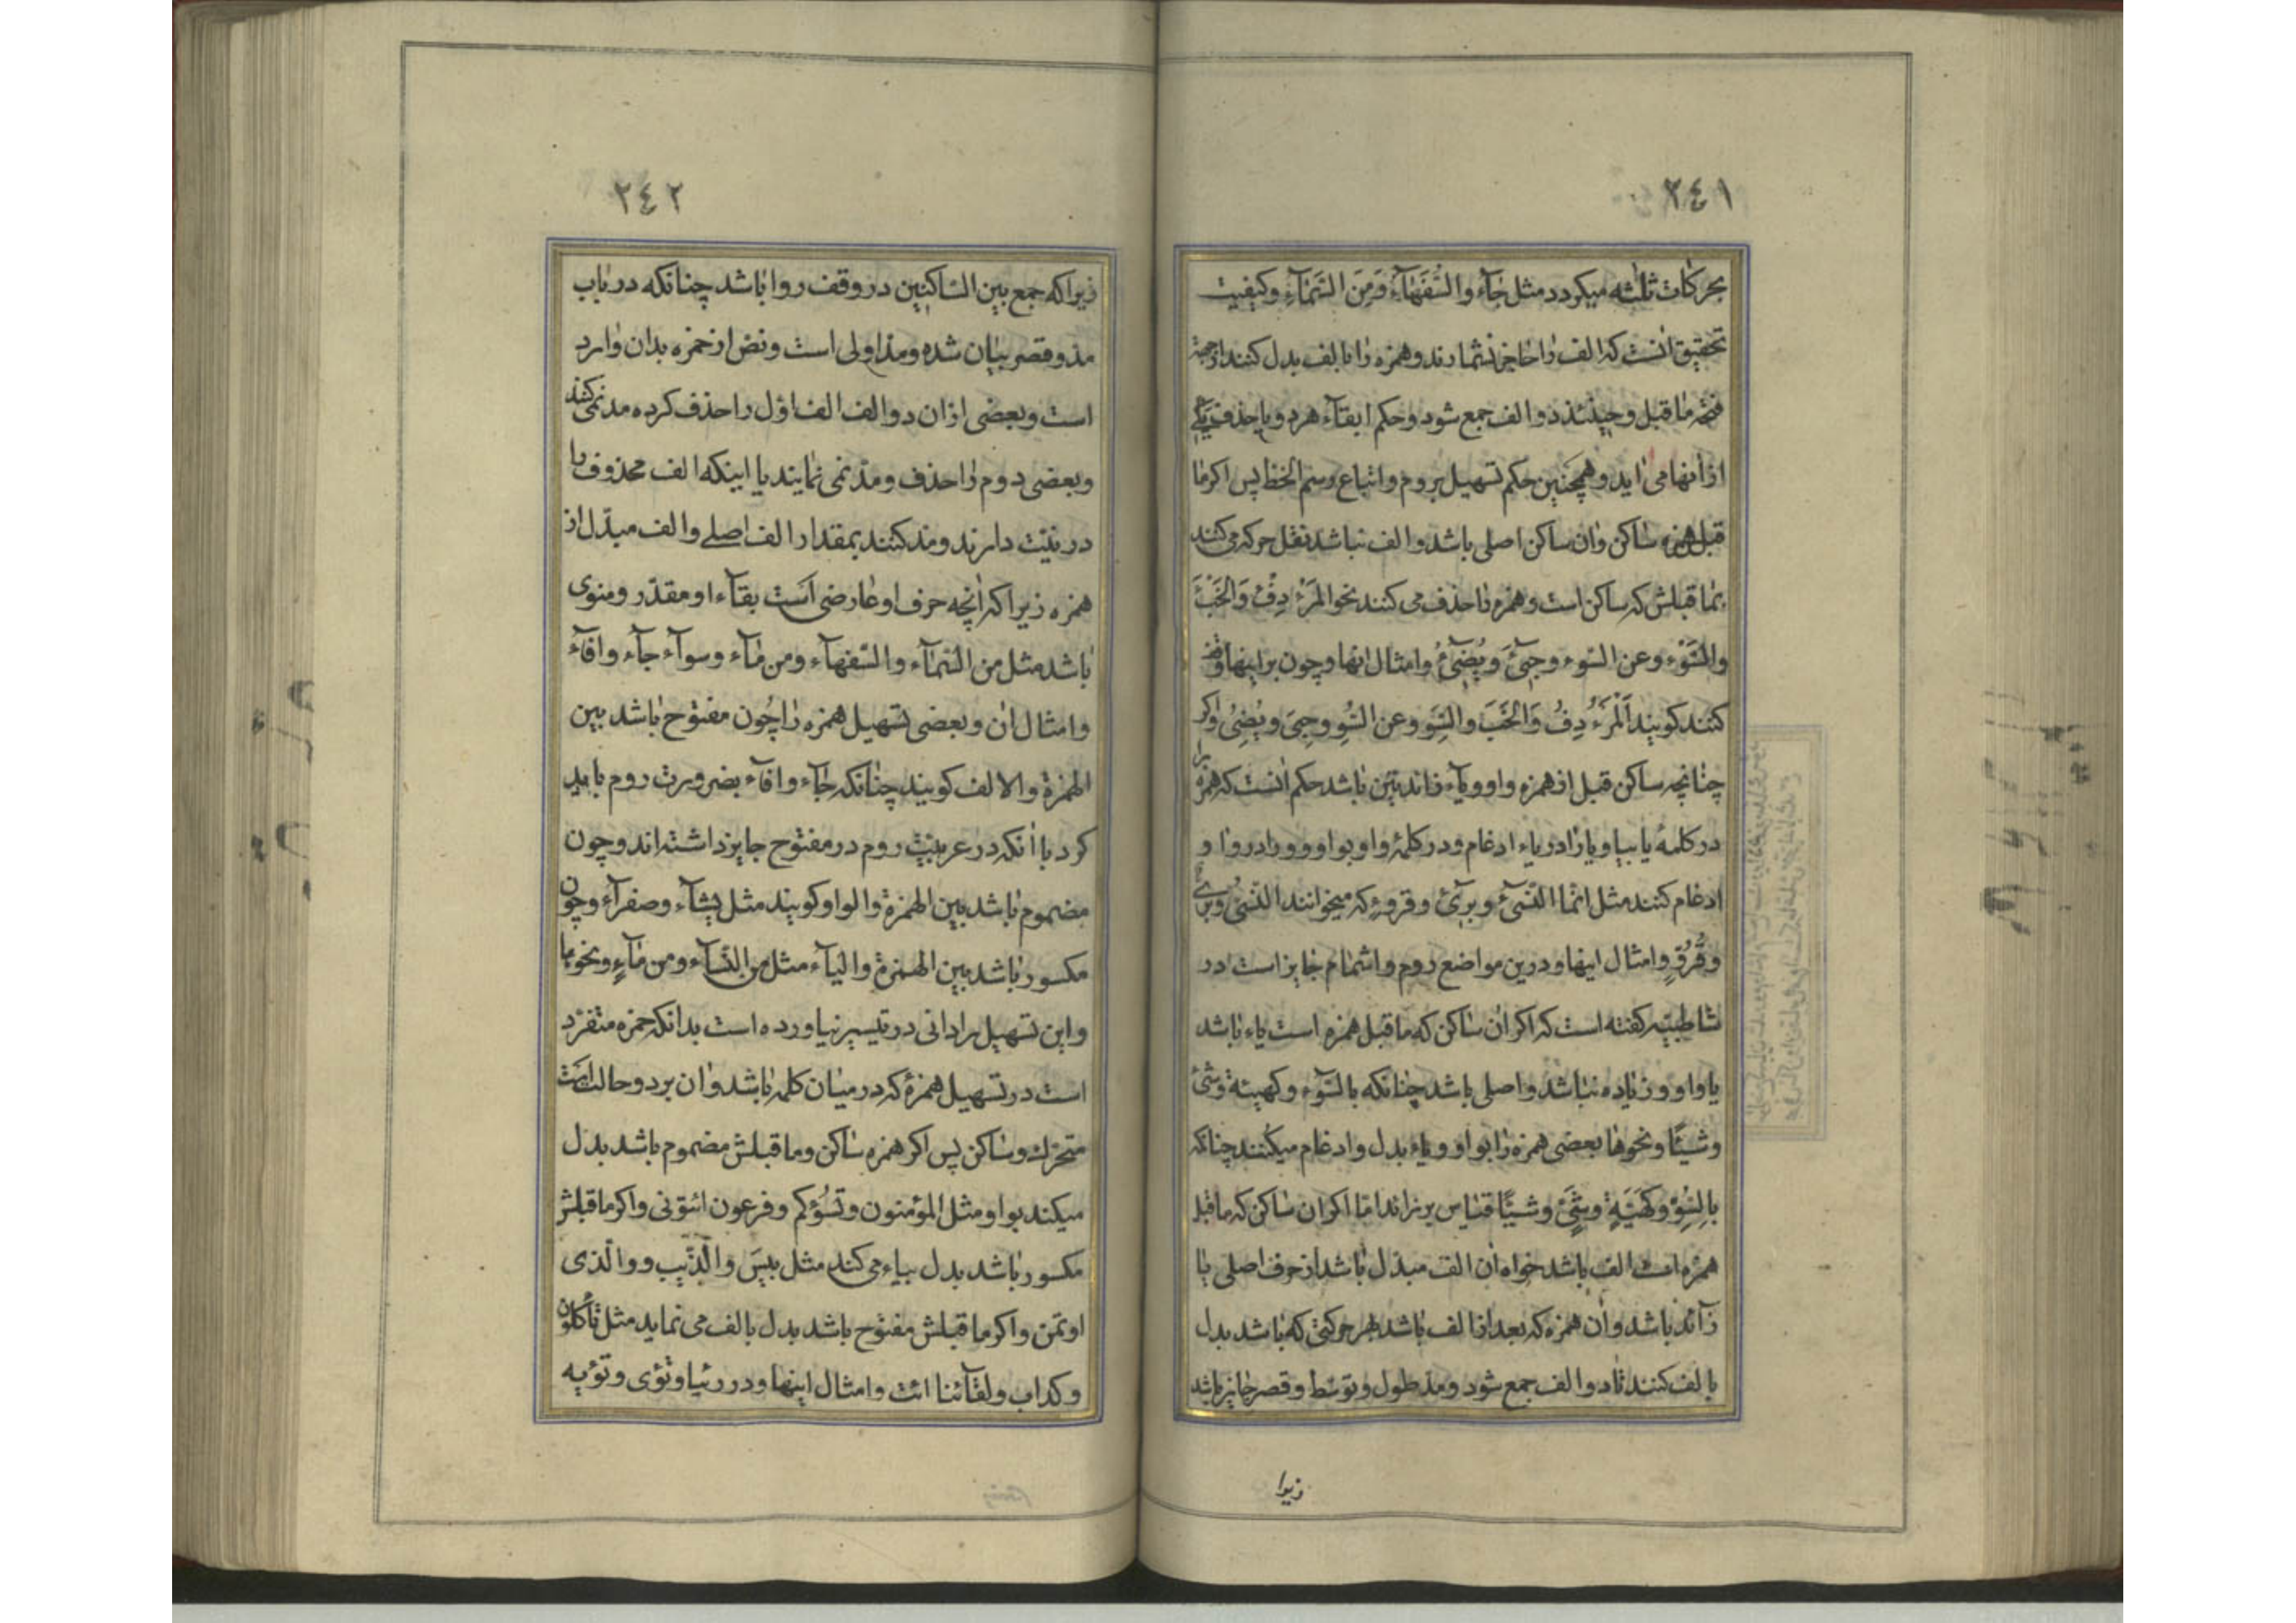 ٢٤١
بحركات ثلثه ميكردد مثل جآء والسُّفَهآءُ وَمِنَ السَّمآءِ وكيفيت
تحقيق آنست كه الف را حاجز نشمارند وهمزه را بالف بدل كنند از جهة
فتحه ماقبل وحينئذ دو الف جمع شود وحكم ابقآء هردو يا حذف يكى
از آنها مى ايد وهمچنين حكم تسهيل بروم واتباع رسم الخط پس اكر ما
قبل همزه ساكن وان ساكن اصلى باشد والف نباشد نقل حركه مى كنند
بما قبلش كه ساكن است وهمزه را حذف مى كنند نحو المَرْء دِفْءٌ وَالخَبْءَ
والسَّوْء وعن السّوء وجِىءَ ويُضِىءُ وامثال انها وچون بر اينها وقف
كنند كويند اَلْمَرُ دِفُ وَالخَبَ والسَّوِ وعن السُّوِ وجِىَ ويُضِىُ واكر
چنانچه ساكن قبل از همزه واو ويآء زائدتين باشد حكم انست كه همزه را
در كلمهٔ يا بيا ويا را در ياء ادغام ودر كلمهٔ واو بواو وو را در وا و
ادغام كنند مثل انّما النّسىٓءُ وبرىٓءٌ وقروءٍ كه ميخوانند النّسىُّ وبرىٌّ
وقُرُوٍّ وامثال اينها ودرين مواضع روم واشمام جايز است در
شاطبيّه كفته است كه اكر ان ساكن كه ماقبل همزه است ياء باشد
يا واو وزياده نباشد واصلى باشد چنانكه بالسّوٓء وكهيئة وشىء
وشيئًا ونحوها بعضى همزه را بواو وياء بدل وادغام ميكنند چنانكه
بالسُّوِّ وكَهَيَّةِ وشَىٍّ وشيًّا قياس برنزاند امّا اكر ان ساكن كه ماقبل
همزه است الف باشد خواه ان الف مبدّل باشد از حرف اصلى يا
زآئد باشد وان همزه كه بعد از الف باشد بهر حركتى كه باشد بدل
بالف كنند تا دو الف جمع شود ومدّ طول وتوسّط وقصر جايز باشد
زيرا
٢٤٢
زيرا كه جمع بين السّاكنين در وقف روا باشد چنانكه در باب
مدّ وقصر بيان شده ومدّ اولى است ونصّ از حمزه بدان وارد
است وبعضى از ان دو الف الف اوّل را حذف كرده مد نمى كنند
وبعضى دوم را حذف ومدّ نمى نمايند با اينكه الف محذوف را
در نيّت دارند ومد كنند بمقدار الف اصلے والف مبدّل از
همزه زيرا كه انچه حرف او عارضى است بقآء او مقدّر ومنوى
باشد مثل من السّمآء والسّفهآء ومن مآء وسوآء جآء وافآء
وامثال ان وبعضى تسهيل همزه را چون مفتوح باشد بين
الهمزة والالف كويند چنانكه جآء وافآء بضرورت روم بايد
كرد با آنكه در عربيّت روم در مفتوح جايز نداشته اند وچون
مضموم باشد بين الهمزة والواو كويند مثل يشآء وصفرآء وچون
مكسور باشد بين الهمزة واليآء مثل من النّسآء ومن مآءٍ ونحوها
واين تسهيل را دانى در تيسير نياورده است بدانكه حمزه متفرّد
است در تسهيل همزهٔ كه در ميان كلمه باشد وان بر دو حالت است
متحرّك وساكن پس اكر همزه ساكن وما قبلش مضموم باشد بدل
ميكند بواو مثل المؤمنون وتَسُؤكم وفرعون ائتونى واكر ماقبلش
مكسور باشد بدل بياء مى كند مثل بيسَ والذّيب ووالّذى
اوتمن واكر ماقبلش مفتوح باشد بدل بالف مى نمايد مثل تأكلون
وكداب ولقآئنا ائت وامثال اينها ودر رئيا وتؤى وتؤيه